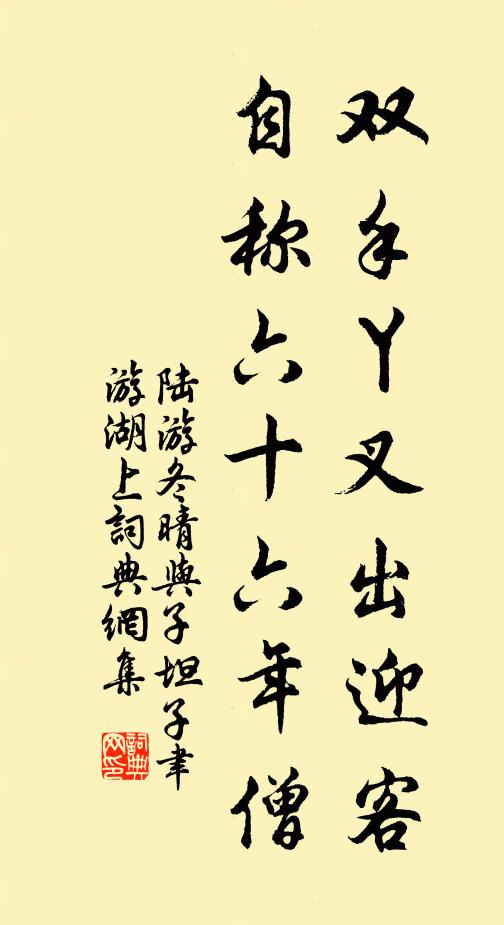 双手丫叉出迎客
自称六十六年僧
陆游冬晴與子坦子聿
游湖上詞典網集
詞典网印